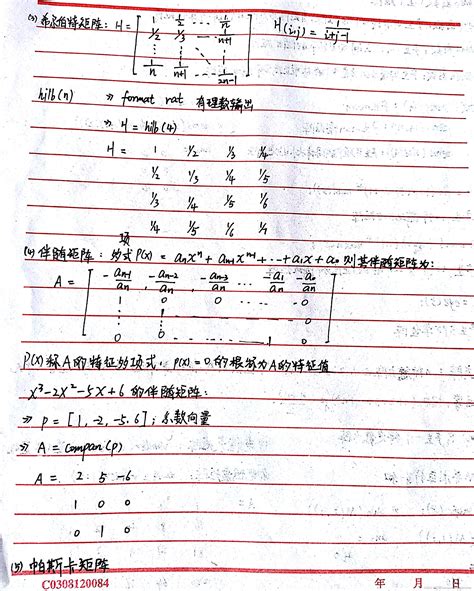 (3) 希尔伯特矩阵: H = [ 1 1/2 ... 1/n ; 1/2 1/3 ... 1/n+1 ; ... ; 1/n 1/n+1 ... 1/2n-1 ] H(i,j) = 1/i+j-1
hilb(n) >> format rat 有理数输出
>> H = hilb(4)
H = 1 1/2 1/3 1/4
1/2 1/3 1/4 1/5
1/3 1/4 1/5 1/6
1/4 1/5 1/6 1/7
项
(4) 伴随矩阵: 多式 P(x) = aₙxⁿ + aₙ₋₁xⁿ⁻¹ + ... + a₁x + a₀ 则其伴随矩阵为:
A = [ -aₙ₋₁/aₙ -aₙ₋₂/aₙ -aₙ₋₃/aₙ ... -a₁/aₙ -a₀/aₙ
1 0 0 ... 0 0
0 1 0
0 0 ... 1 0 ]
P(x) 称A的特征多项式, P(x)=0的根称为A的特征值
x³-2x²-5x+6 的伴随矩阵:
>> p = [1, -2, -5, 6]; 系数向量
>> A = compan(p)
A = 2 5 -6
1 0 0
0 1 0
(5) 帕斯卡矩阵
C0308120084 年 月 日